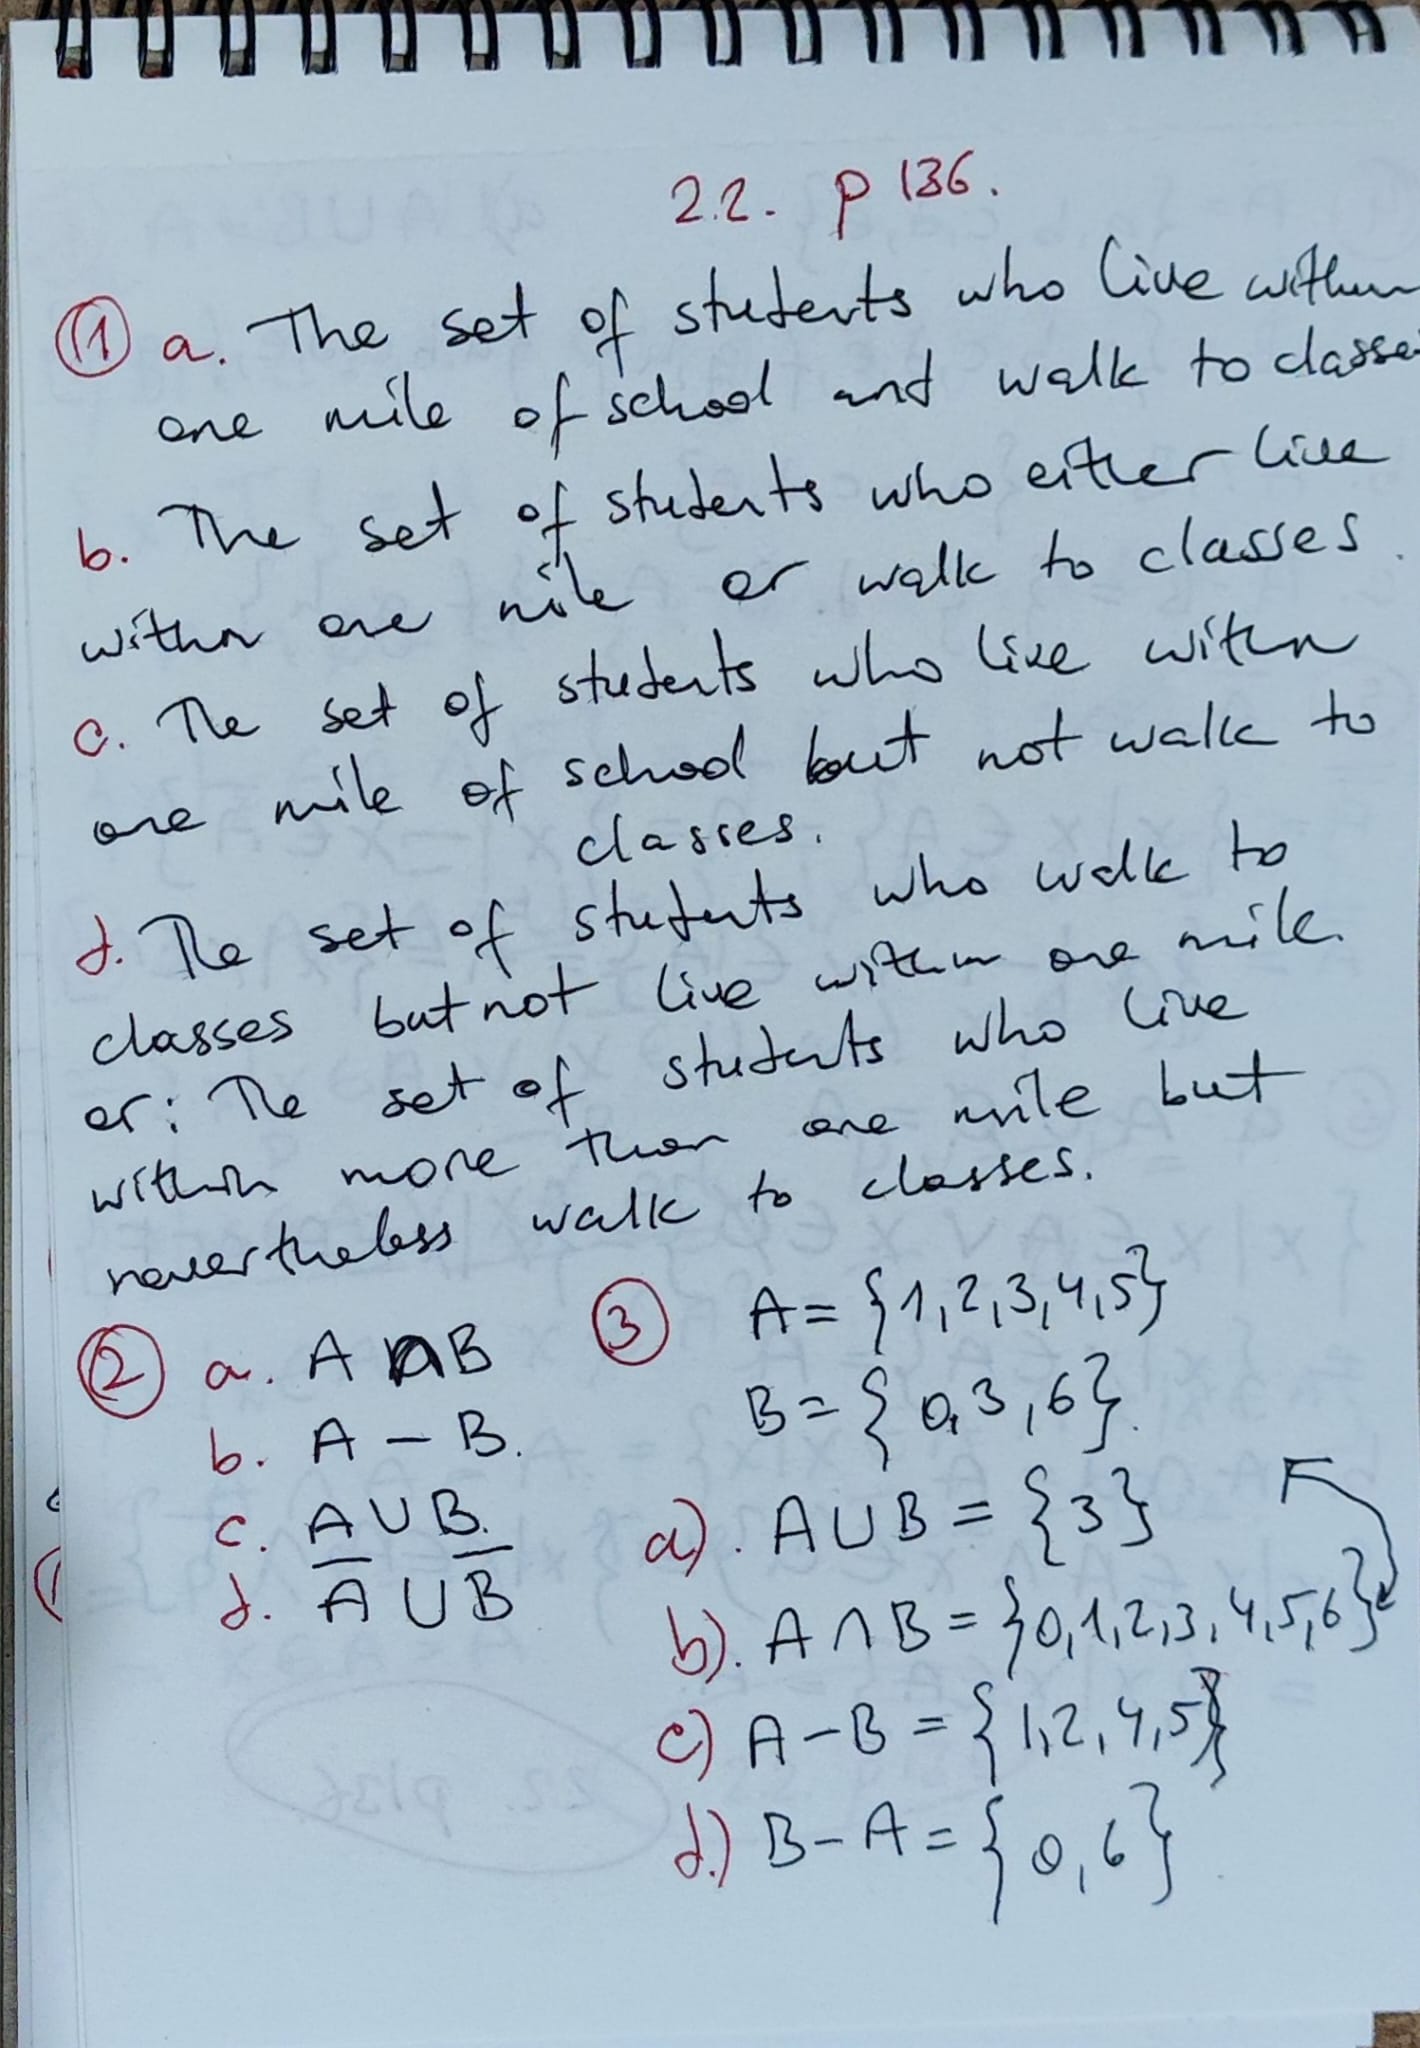 2.2. p 136.
① a. The set of students who live within
one mile of school and walk to classes
b. The set of students who either live
within one mile or walk to classes.
c. The set of students who live within
one mile of school but not walk to
classes.
d. The set of students who walk to
classes but not live within one mile.
or: The set of students who live
within more than one mile but
nevertheless walk to classes.
② a. A ∩ B
b. A – B.
c. A ∪ B.
d. A̅ ∪ B̅
③ A = {1,2,3,4,5}
B = {0,3,6}.
a). A ∪ B = {3}
b). A ∩ B = {0,1,2,3,4,5,6}
c) A – B = {1,2,4,5}
d.) B – A = {0,6}